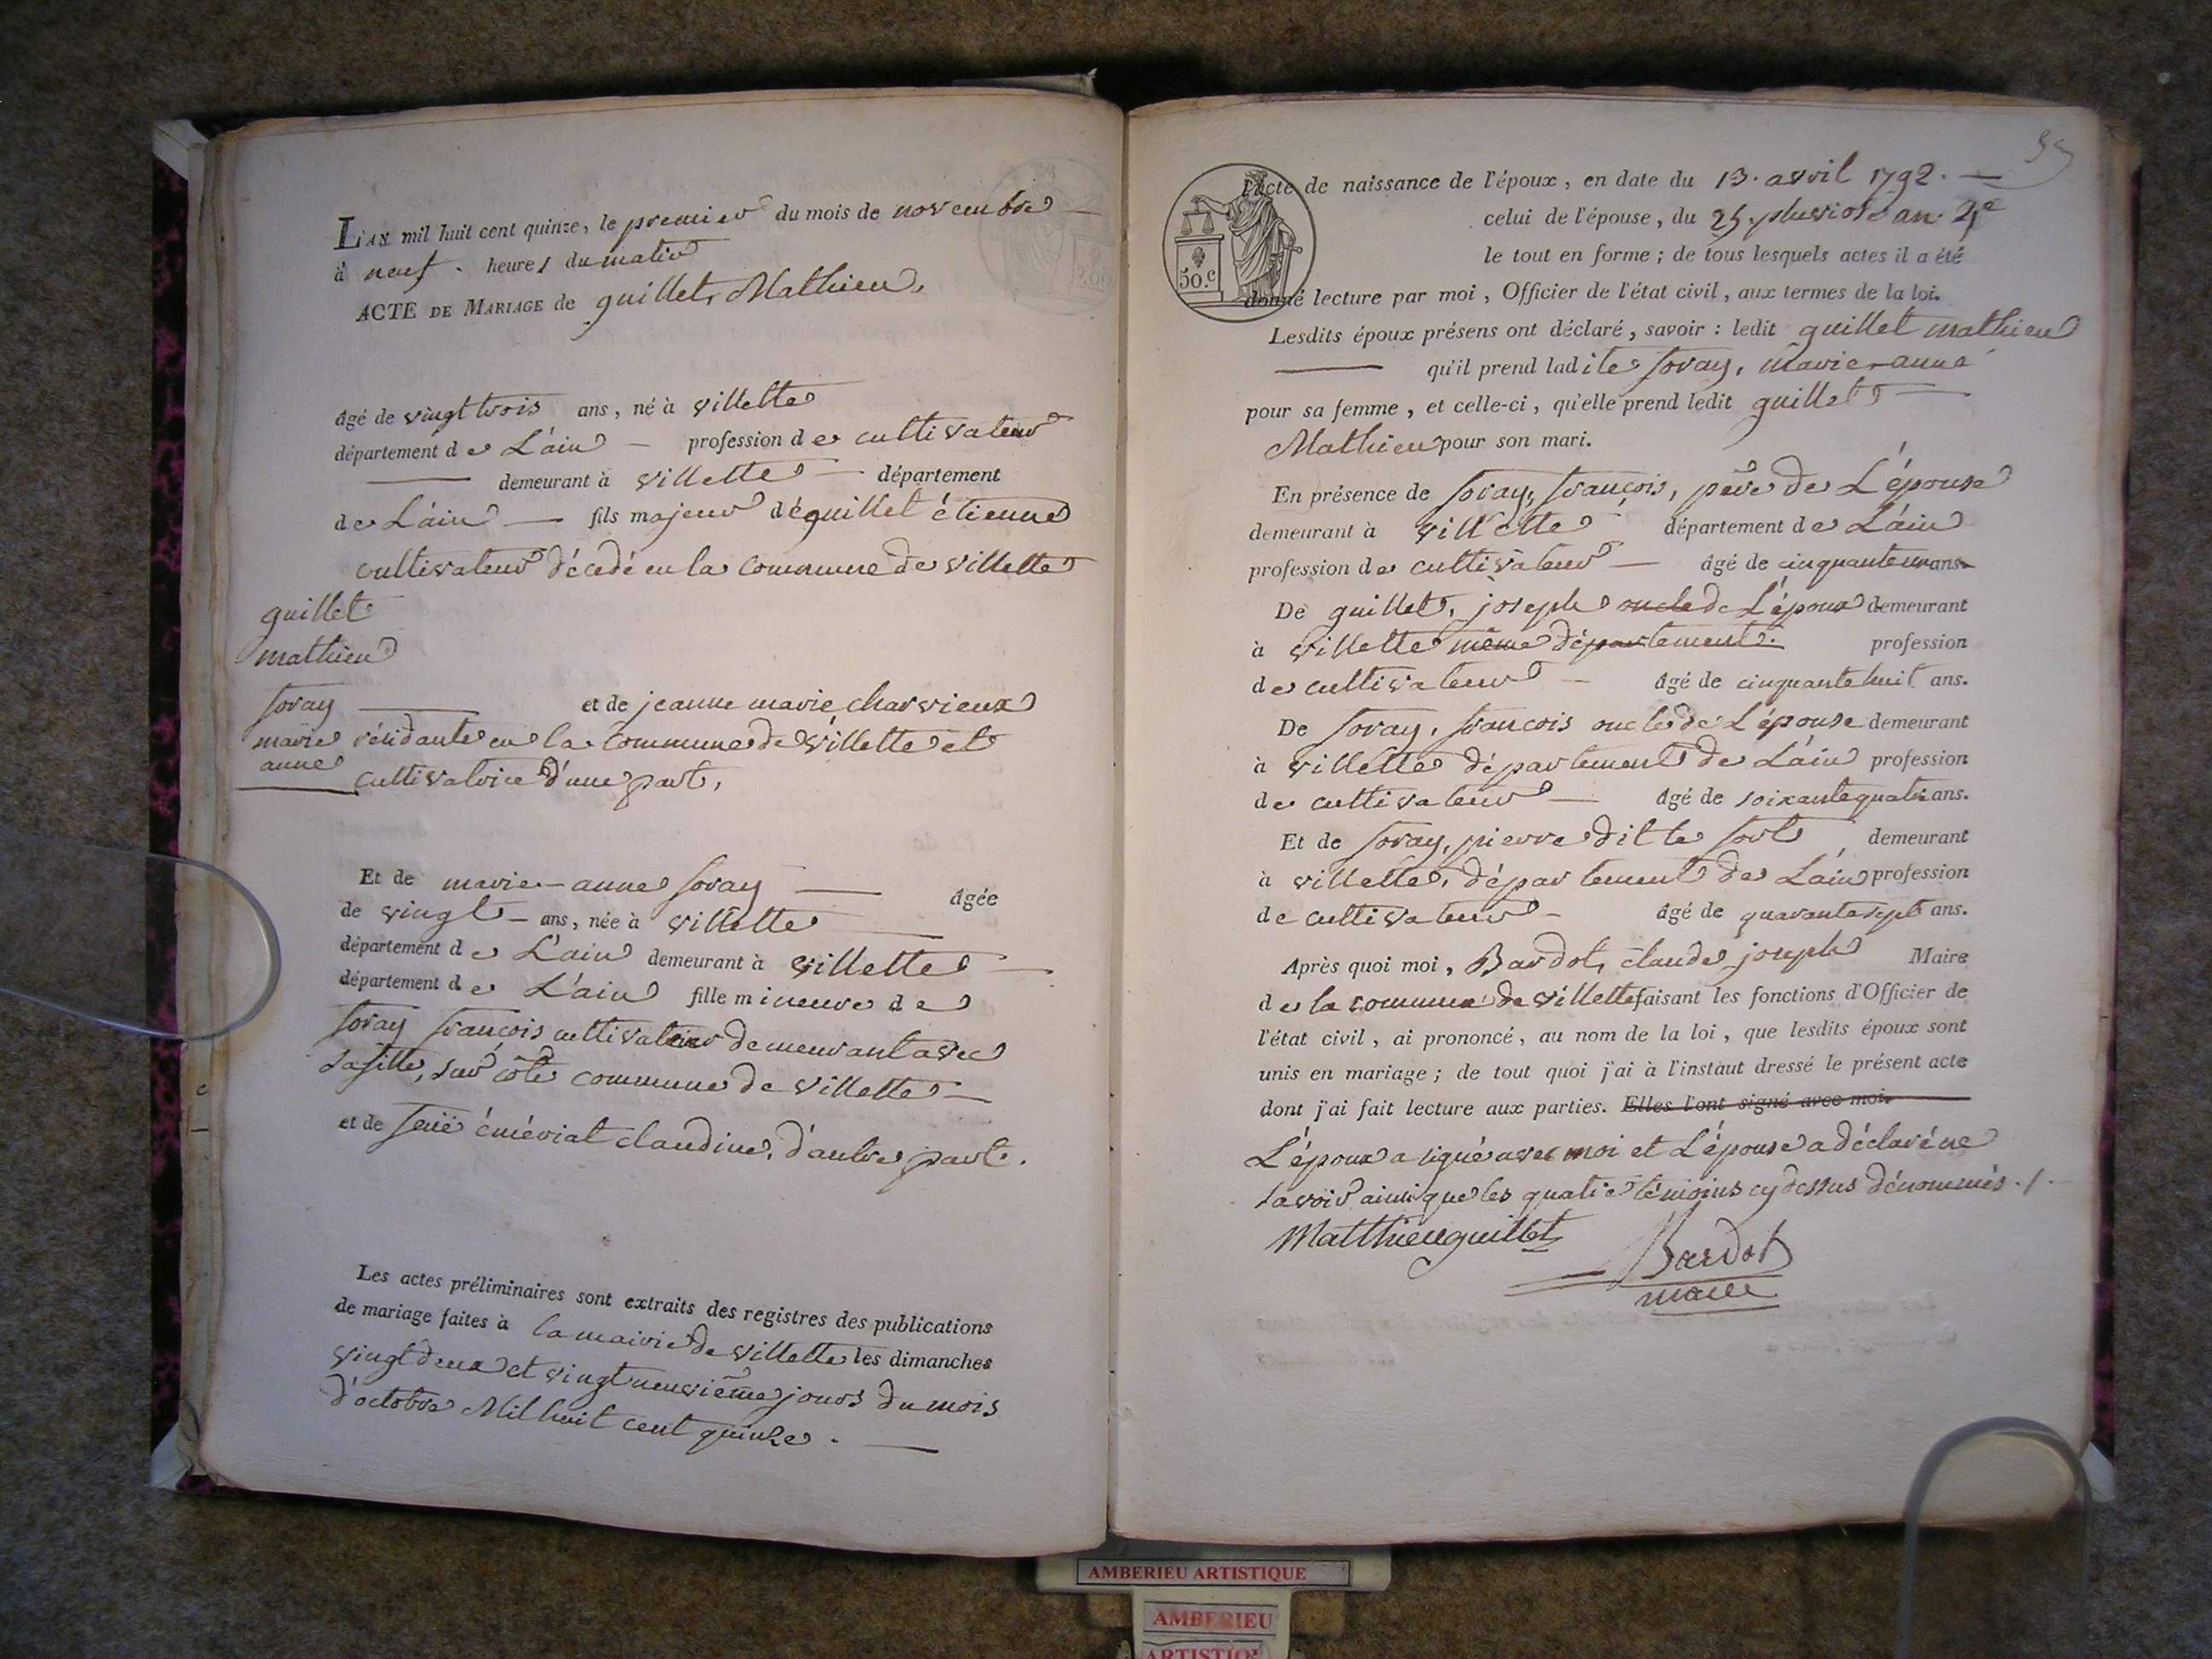 L'AN mil huit cent quinze, le premier du mois de novembre
à neuf heures du matin
ACTE DE MARIAGE de guillet, Mathieu,
âgé de vingt trois ans, né à villette
département de L'ain profession de cultivateur
demeurant à villette département
de L'ain fils majeur dé guillet étienne
cultivateur décédé en la commune de villette
guillet
mathieu
foray
marie
anne
et de jeanne marie charvieux
résidante en la commune de villette et
cultivatrice d'une part,
Et de marie-anne foray âgée
de vingt ans, née à villette
département de L'ain demeurant à villette
département de L'ain fille mineure de
foray françois cultivateur demeurant avec
sa fille, sur côte commune de villette
et de feüe émériat claudine, d'autre part.
Les actes préliminaires sont extraits des registres des publications
de mariage faites à la mairie de villette les dimanches
vingt deux et vingt neuvième jours du mois
d'octobre Mil huit cent quinze.
55
L'acte de naissance de l'époux, en date du 13. avril 1792.
celui de l'épouse, du 25. pluviose an
le tout en forme; de tous lesquels actes il a été
50.c
donné lecture par moi, Officier de l'état civil, aux termes de la loi.
Lesdits époux présens ont déclaré, savoir : ledit guillet mathieu
qu'il prend ladite foray, marie-anne
pour sa femme, et celle-ci, qu'elle prend ledit guillet
Mathieu pour son mari.
En présence de foray, françois, père de L'épouse
demeurant à villette département de L'ain
profession de cultivateur âgé de cinquante un ans
De guillet, joseph oncle de L'époux demeurant
à villette même département. profession
de cultivateur âgé de cinquante huit ans.
De foray, francois oncle de L'épouse demeurant
à villette département de L'ain profession
de cultivateur âgé de soixante quatre ans.
Et de foray, pierre dit le fort demeurant
à villette, département de L'ain profession
de cultivateur âgé de quarante sept ans.
Après quoi moi, Bardot, claude joseph Maire
de la commune de villette faisant les fonctions d'Officier de
l'état civil, ai prononcé, au nom de la loi, que lesdits époux sont
unis en mariage; de tout quoi j'ai à l'instant dressé le présent acte
dont j'ai fait lecture aux parties. Elles l'ont signé avec moi
L'époux a signé avec moi et L'épouse a déclaré ne
savoir ainsi que les quatre témoins cy dessus dénommés./.
Matthieu guillet
Bardot
maire
AMBERIEU ARTISTIQUE
AMBERIEU
ARTISTIQ